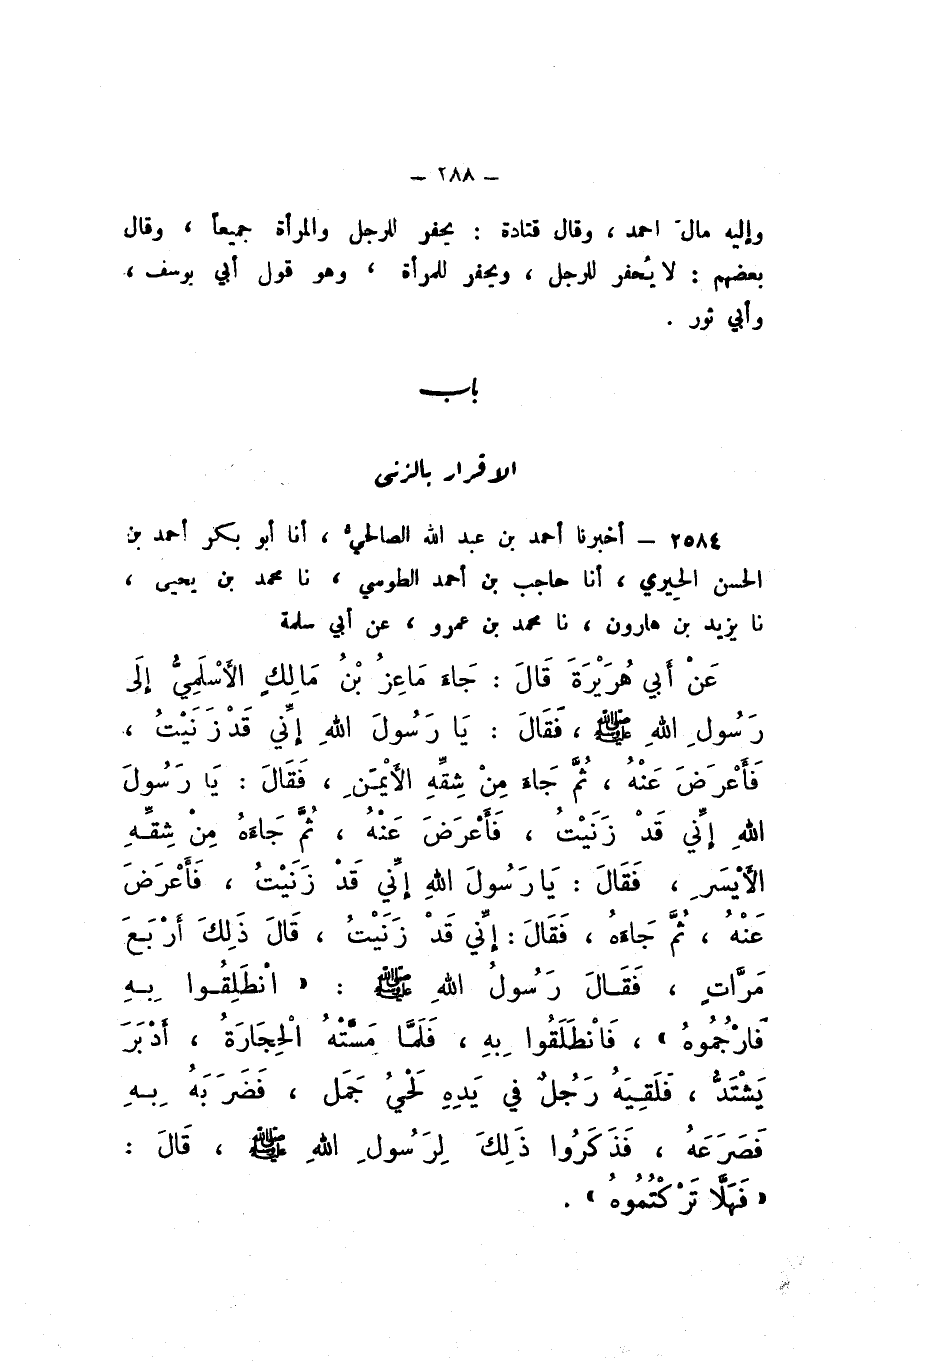 – ٢٨٨ –
وإليه مالَ احمد ، وقال قتادة : يحفر للرجل والمرأة جميعاً ، وقال
بعضهم : لا يُحفر للرجل ، ويحفر للمرأة ، وهو قول أبي يوسف ،
وأبي ثور .
باب
الاقرار بالزنى
٢٥٨٤ – أخبرنا أحمد بن عبد الله الصالحيُّ ، أنا أبو بكر أحمد بن
الحسن الحِيري ، أنا حاجب بن أحمد الطوسي ، نا محمد بن يحيى ،
نا يزيد بن هارون ، نا محمد بن عمرو ، عن أبي سلمة
عَنْ أَبي هُرَيْرَةَ قَالَ : جَاءَ مَاعِزُ بْنُ مَالِكٍ الأَسْلَمِيُّ إِلَى
رَسُولِ اللهِ ﷺ ، فَقَالَ : يَا رَسُولَ اللهِ إِنِّي قَدْ زَنَيْتُ ،
فَأَعْرَضَ عَنْهُ ، ثُمَّ جَاءَ مِنْ شِقِّهِ الأَيْمَنِ ، فَقَالَ : يَا رَسُولَ
اللهِ إِنِّي قَدْ زَنَيْتُ ، فَأَعْرَضَ عَنْهُ ، ثُمَّ جَاءَهُ مِنْ شِقِّهِ
الأَيْسَرِ ، فَقَالَ : يَا رَسُولَ اللهِ إِنِّي قَدْ زَنَيْتُ ، فَأَعْرَضَ
عَنْهُ ، ثُمَّ جَاءَهُ ، فَقَالَ : إِنِّي قَدْ زَنَيْتُ ، قَالَ ذَلِكَ أَرْبَعَ
مَرَّاتٍ ، فَقَالَ رَسُولُ اللهِ ﷺ : « انْطَلِقُوا بِهِ
فَارْجُمُوهُ » ، فَانْطَلَقُوا بِهِ ، فَلَمَّا مَسَّتْهُ الْحِجَارَةُ ، أَدْبَرَ
يَشْتَدُّ ، فَلَقِيَهُ رَجُلٌ في يَدِهِ لَحْيُ جَمَل ، فَضَرَبَهُ بِهِ
فَصَرَعَهُ ، فَذَكَرُوا ذَلِكَ لِرَسُولِ اللهِ ﷺ ، قَالَ :
« فَهَلَّا تَرْكْتُمُوهُ » .